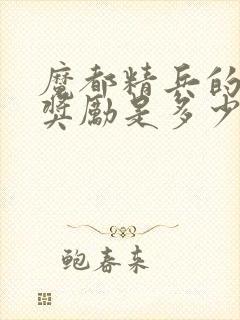 魔都精兵的
奖励是多少
鲍春来